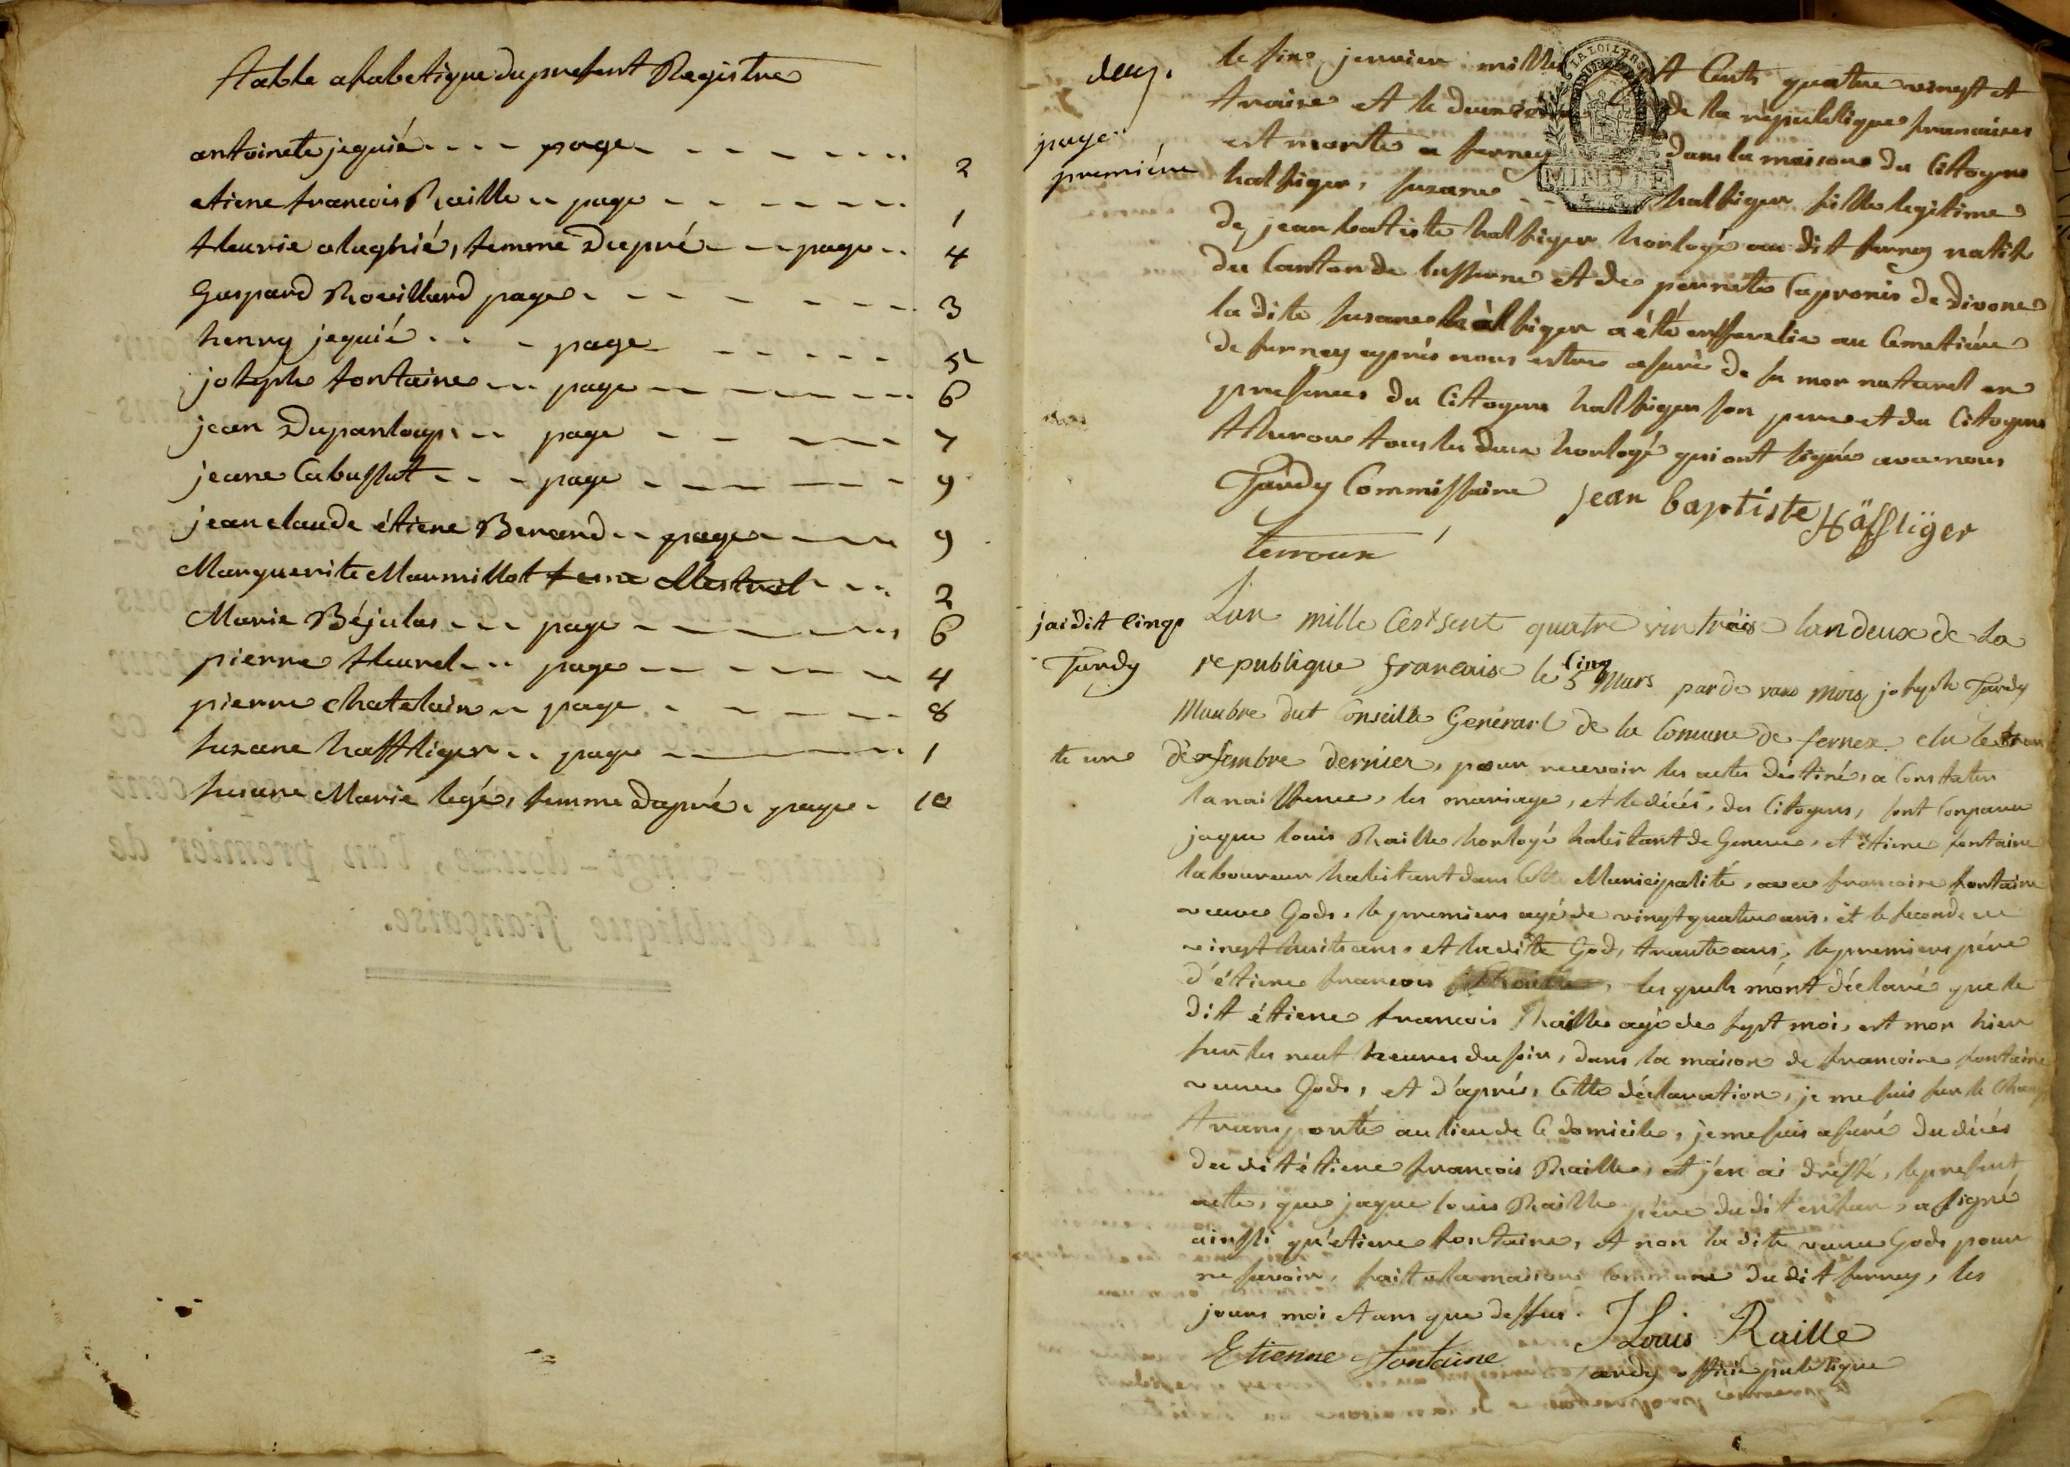 table alabetique du present Registre
antoinete jequié - - - - page - - - - - - - 2
etiene francois Raille - - page - - - - - - - 1
fleurie alagnié, femme Dupré - - - page - - 4
Gaspard Rouillard page - - - - - - - 3
henry jequié - - - page - - - - - 5
joseph fontaine - - - page - - - - - - - 6
jean Dupanloup - - page - - - - - 7
jeane Cabussat - - - page - - - - - 9
jean claude étiene Berard - - page - - - - 9
Marguerite Marmillot feme Mestral - - - 2
Marie Béjulas - - - page - - - - - 6
pierre fleuret - - - page - - - - - - 4
pierre chatelain - - page - - - - - - 8
susane haffliger - - page - - - - - 1
susane Marie legé, femme Dapré - page - 10
page
premiére
le sinq jenvier mille Cents quatre vingt et
traise et le deusieme de la république francaises
est morte a ferney dans la maison du Citoyen
halfiger, susane halfiger fille legitime
de jean batiste halfiger horlogé au dit ferney natif
du Canton de lusserne et de pernete Capronis de divone
la dite susane halfiger a été ensevelie au Cemetiére
de ferney aprés nous estre asuré de sa mor naturel en
presences du Citoyen halfiger son pere et du Citoyen
tous les deux horlogé qui ont signé avec nous
Tardy Commissaire jean baptiste Häffliger
terroux
jai dit Cinq
Tardy
L'an mille Cest sent quatre vin tréise lan deux de La
republique francaise le 5 Cinq Mars par de vans mois joseph Tardy
Manbre dut Conseille Generarl de la Comune de fernex elu le tran
te une désembre dernier, pour recevoir les actes déstiné, a Constater
la naissence, les mariage, et le décés, des Citoyens, sont Conparu
jaque louis Raille horlogé habitant de Geneve, et étiene fontaine
laboureur habitant dans Cette Municipalité, avec francoise fontaine
veuve Gods, le premiers agé de vingt quatre ans, et le second de
vingt huits ans, et la dite God, trante ans, le premiers pére
d'étiene francois Raille, les quels m'ont déclaré que le
dit étiene francois Raille agé de sept moi, est mor hier
sur les neuf heures du soir, dans la maison de francoise fontaine
veuve Gods, et d'aprés, Cette déclaration, je me suis sur le Chan
transporté au lieu de Ce domicile, je me suis asuré du décés
du dit étiene francois Raille, et j'en ai dréssé, le present
acte, que jaque louis Raille pére du dit enfan, a signé
ainssi qu'etiene fontaine, et non la dite veuve Gods pour
ne savoir, fait a la maison Commune du dit ferney, les
jours moi et ans que dessus. J Louis Raille
Etienne fontaine Tardy officié publique
LA LOI
MINUTE